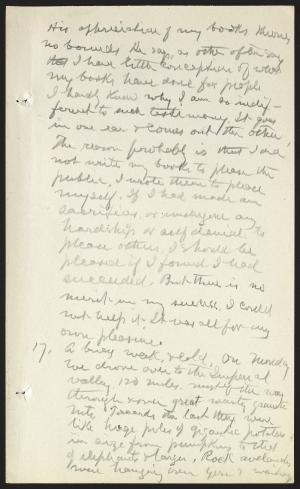 His appreciation of my books knows
no bounds. He says, as others often say
I have little conception of what
my books have done for people
I hardly know why I am so indif-
ferent to such testimony. It goes
in one ear & comes out the other,
The reason probably is that I did
not write my books to please the
public, I wrote them to please
myself. If I had made any
sacrifices, or undergone any
hardships or self denial to
please others, I should be
pleased if I found I had
succeeded. But there is no
merit in my success, I could
not help it. It was all for my
own pleasure.
17. A busy week, & cold, On Monday
we drove over to the Imperial
valley, 120 miles. most of the way
through & over great granite
mts. Towards the last they were
like huge piles of gigantic potatoes
in size from pumpkins to that
of elephants & larger. Rock avalanches
were hanging over you &